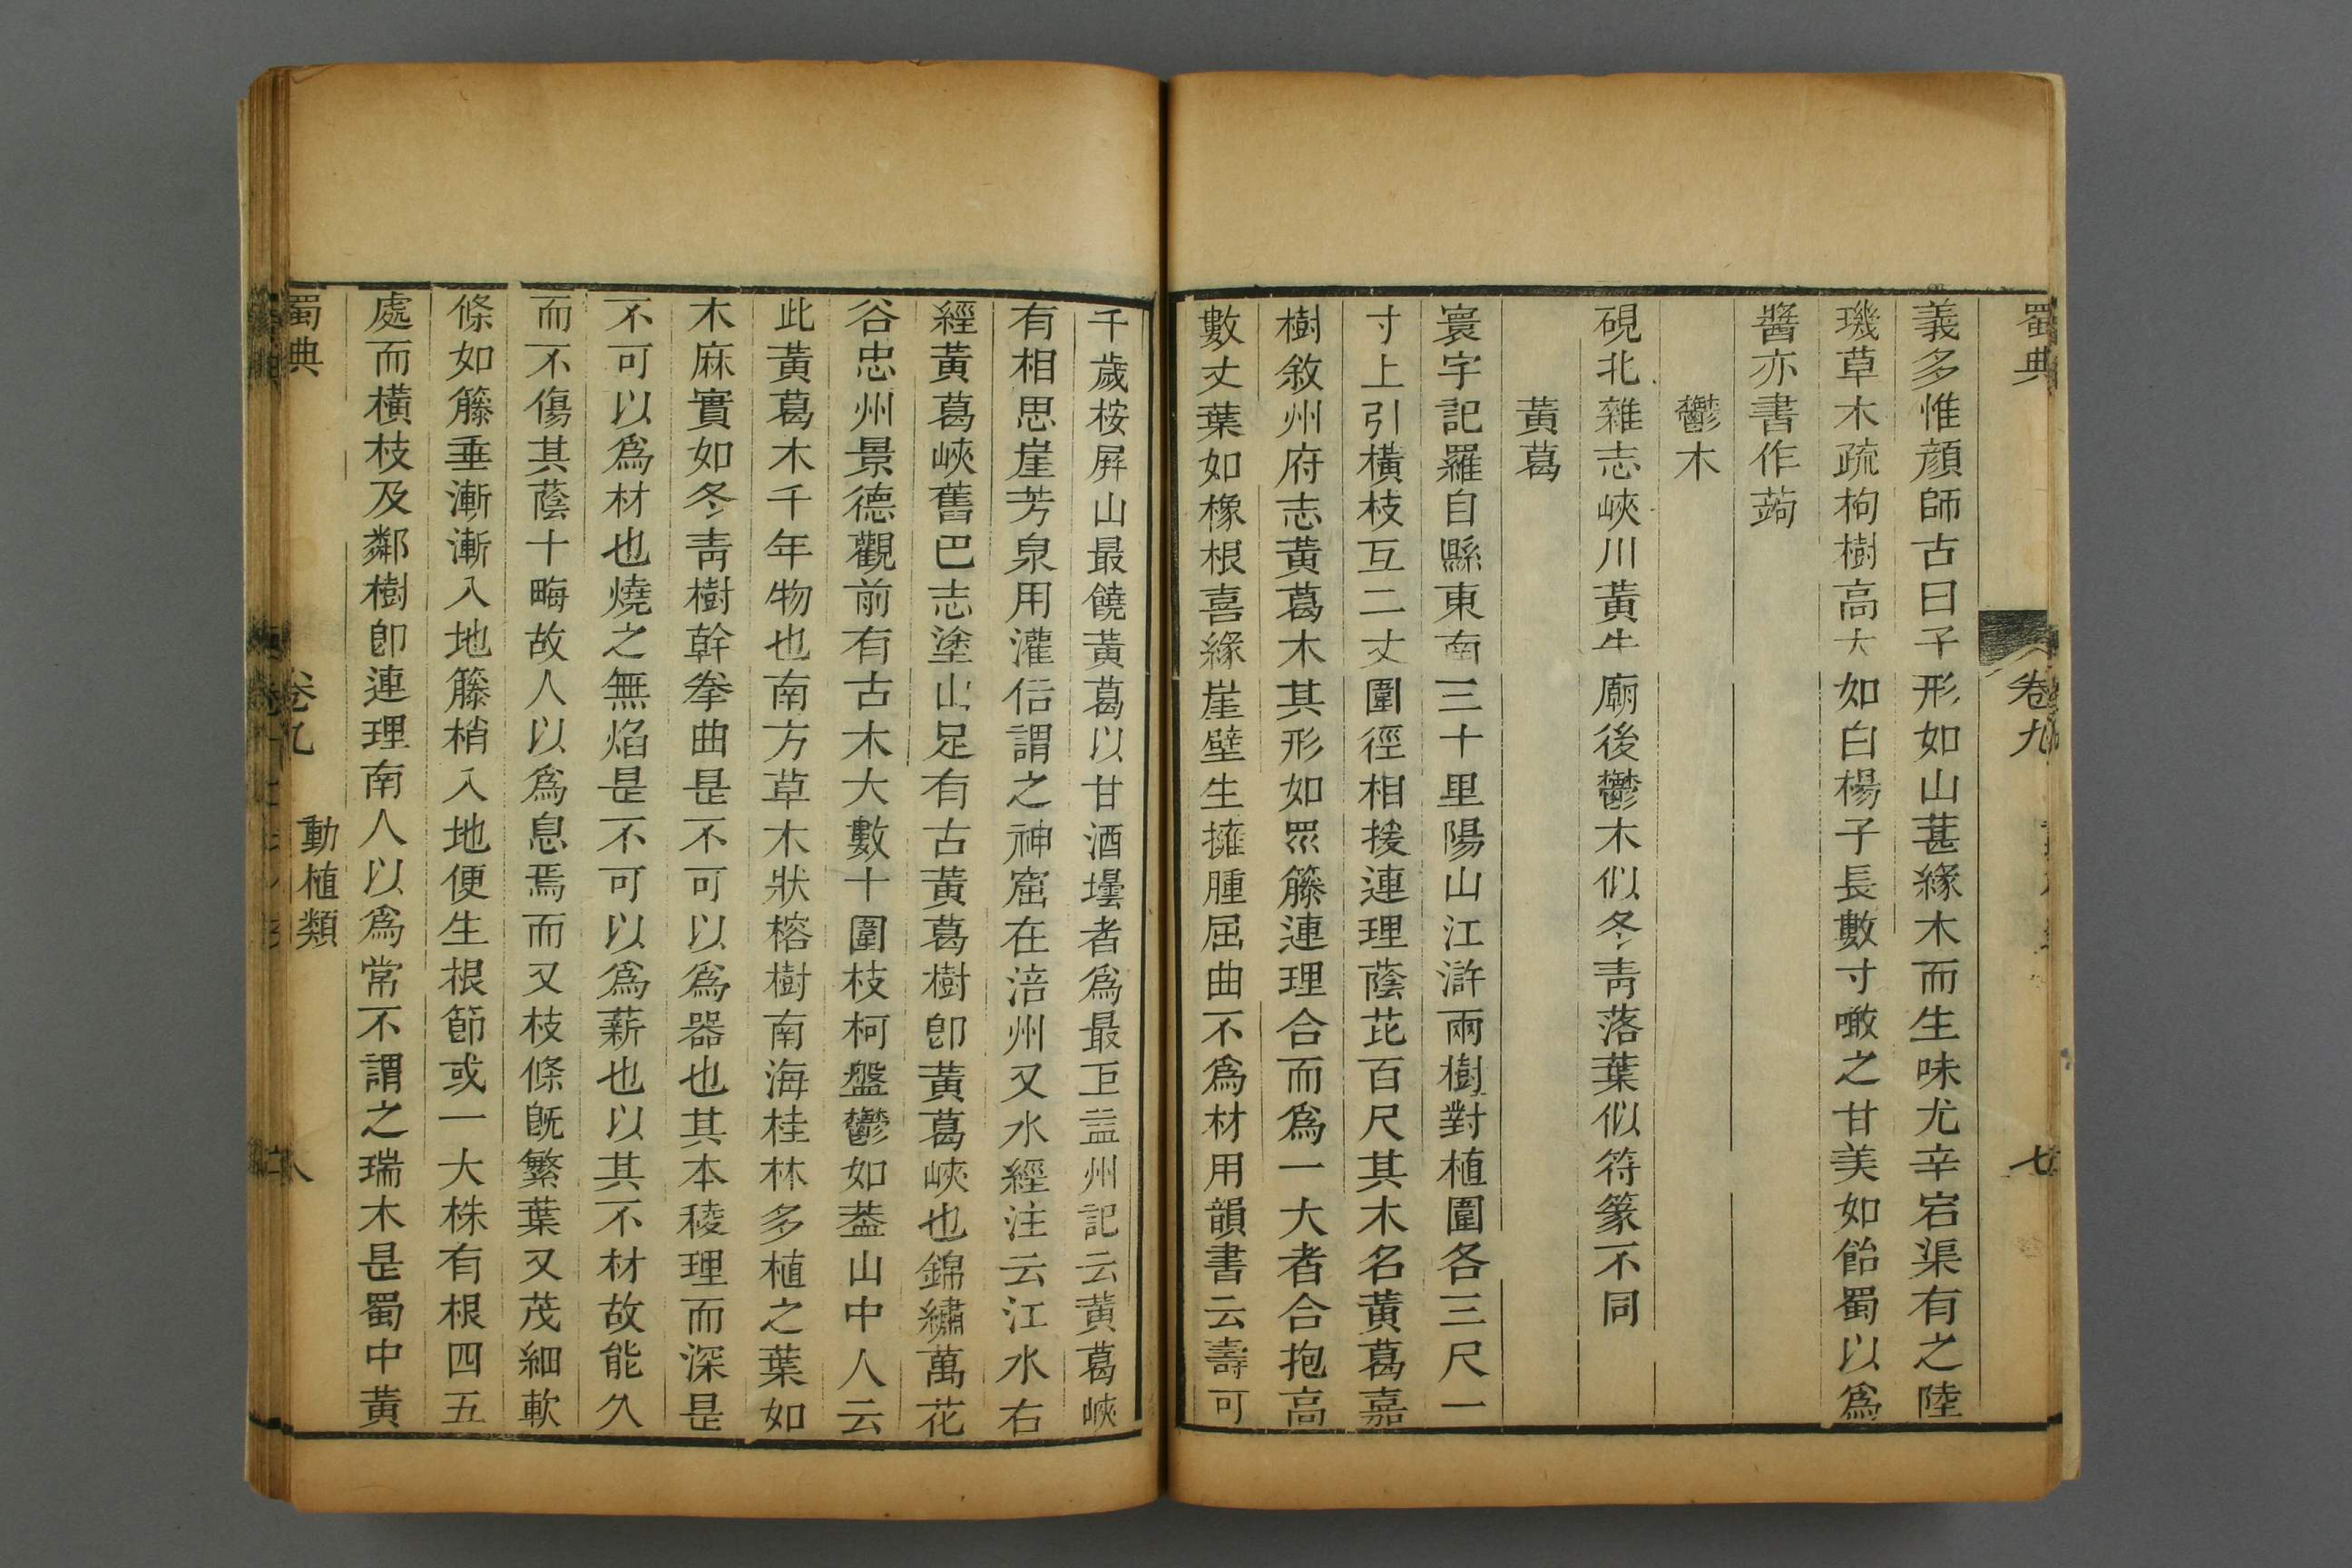 蜀典 卷九 七
義多惟顔師古曰子形如山葚緣木而生味尤辛宕渠有之陸
璣草木疏枸樹高大如白楊子長數寸噉之甘美如飴蜀以爲
醬亦書作蒟
鬱木
硯北雜志峽川黃牛廟後鬱木似冬青落葉似符篆不同
黃葛
寰宇記羅自縣東南三十里陽山江滸兩樹對植圍各三尺一
寸上引橫枝互二丈圍徑相援連理蔭芘百尺其木名黃葛嘉
樹敘州府志黃葛木其形如眾籐連理合而爲一大者合抱高
數丈葉如橡根喜緣崖壁生擁腫屈曲不爲材用韻書云壽可
千歲桉屛山最饒黃葛以甘酒壜者爲最 益州記云黃葛峽
有相思崖芳泉用灌俗謂之神窟在涪州又水經注云江水右
經黃葛峽舊巴志塗山足有古黃葛樹卽黃葛峽也錦繡萬花
谷忠州景德觀前有古木大數十圍枝柯盤鬱如葢山中人云
此黃葛木千年物也南方草木狀榕樹南海桂林多植之葉如
木麻實如冬青樹幹拳曲是不可以爲器也其本稜理而深是
不可以爲材也燒之無焰是不可以爲薪也以其不材故能久
而不傷其蔭十畮故人以爲息焉而又枝條旣繁葉又茂細軟
條如籐垂漸漸入地籐梢入地便生根節或一大株有根四五
處而橫枝及鄰樹卽連理南人以爲常不謂之瑞木是蜀中黃
蜀典 卷九 動植類 八